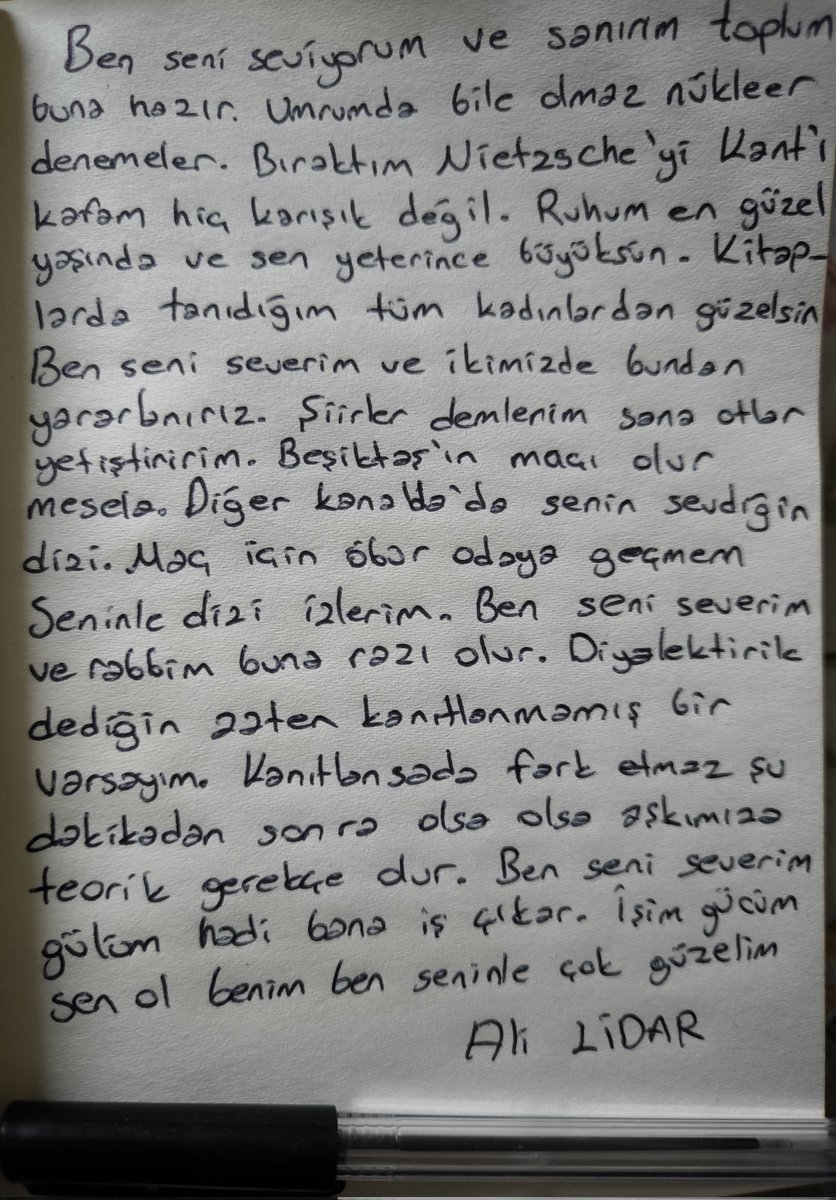 Ben seni seviyorum ve sanırım toplum
buna hazır. Umrumda bile olmaz nükleer
denemeler. Bıraktım Nietzsche'yi Kant'ı
kafam hiç karışık değil. Ruhum en güzel
yaşında ve sen yeterince büyüksün. Kitap-
larda tanıdığım tüm kadınlardan güzelsin
Ben seni severim ve ikimizde bundan
yararlanırız. Şiirler demlenim sana otlar
yetiştiririm. Beşiktaş'ın maçı olur
mesela. Diğer kanalda'da senin sevdiğin
dizi. Maç için öbür odaya geçmem
Seninle dizi izlerim. Ben seni severim
ve rabbim buna razı olur. Diyalektirik
dediğin zaten kanıtlanmamış bir
varsayım. Kanıtlansada fark etmez şu
dakikadan sonra olsa olsa aşkımıza
teorik gerekçe dur. Ben seni severim
gülüm hadi bana iş çıkar. İşim gücüm
sen ol benim ben seninle çok güzelim
Ali LİDAR